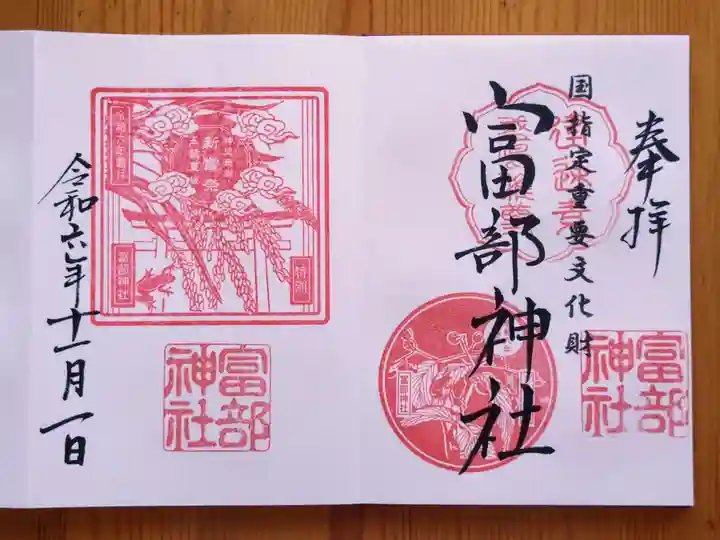 奉拝
国指定重要文化財
富部神社
富部
神社
富部神社
新嘗祭
特別
富部神社
富部
神社
令和六年十一月一日